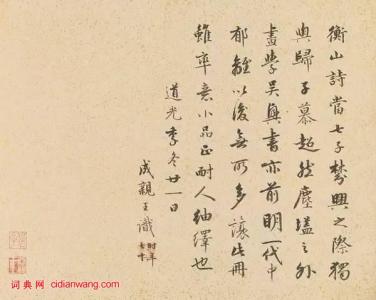 衡山詩當七子棼興之際獨
與歸子慕超然塵壒之外
畫學吳興書亦前明一代中
郁離以後無所多讓此冊
雖率意小品正耐人紬繹也
道光季冬廿一日
成親王識
時年
七十
词典网 cidianwang.com